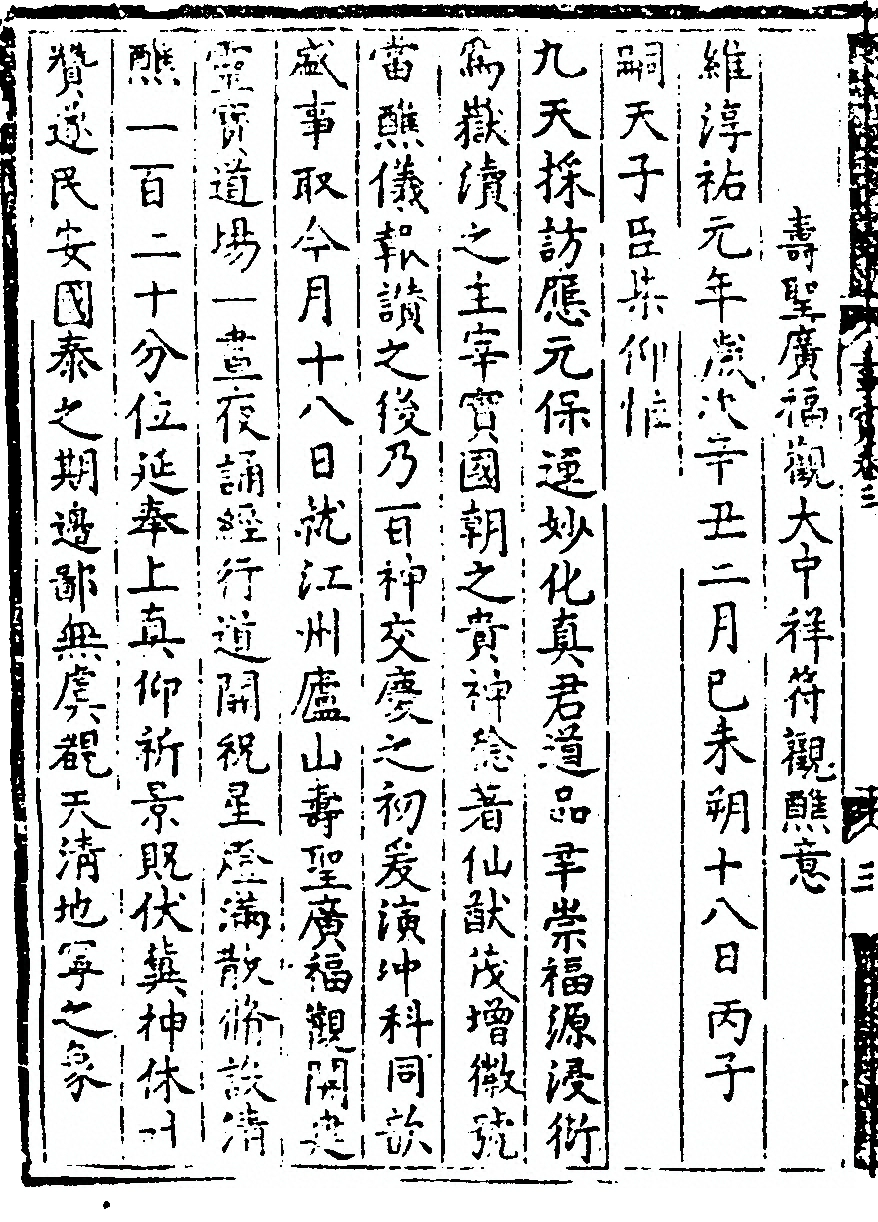 壽聖廣福觀大中祥符觀醮意
維淳祐元年歲次辛丑二月己未朔十八日丙子
嗣天子臣某仰惟
九天採訪應元保運妙化真君道品平崇福源浸衍
為嶽瀆之主宰實國朝之貴神稔著仙猷茂增徽號
當醮儀報讚之後乃百神交慶之初爰演沖科同歆
盛事取今月十八日就江州廬山壽聖廣福觀開建
靈寶道場一晝夜誦經行道開祝星燈滿散脩設清
醮一百二十分位延奉上真仰祈景貺伏冀神休
贊遂民安國泰之期邊鄙無虞覩天清地寧之象
事實卷三
三